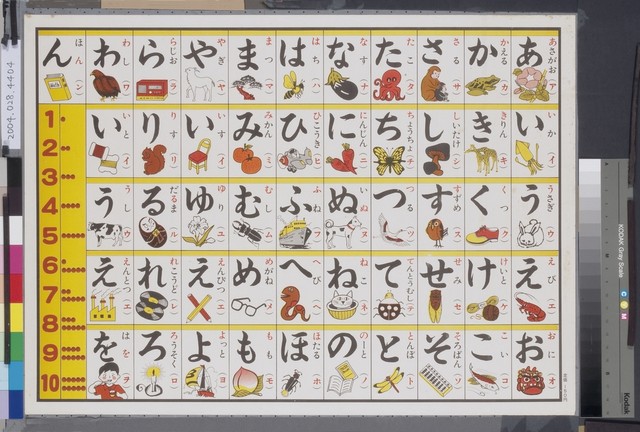 あ
あさがお(ア)
い
いか(イ)
う
うさぎ(ウ)
え
えび(エ)
お
おに(オ)
か
かえる(カ)
き
きりん(キ)
く
くつ(ク)
け
けいと(ケ)
こ
こい(コ)
さ
さる(サ)
し
しいたけ(シ)
す
すずめ(ス)
せ
せみ(セ)
そ
そろばん(ソ)
た
たこ(タ)
ち
ちょうちょ(チ)
つ
つる(ツ)
て
てんとうむし(テ)
と
とんぼ(ト)
な
なす(ナ)
に
にんじん(ニ)
ぬ
いぬ(ヌ)
ね
ねこ(ネ)
の
のーと(ノ)
は
はち(ハ)
ひ
ひこうき(ヒ)
ふ
ふね(フ)
へ
へび(ヘ)
ほ
ほたる(ホ)
ま
まつ(マ)
み
みかん(ミ)
む
むし(ム)
め
めがね(メ)
も
もも(モ)
や
やぎ(ヤ)
い
いす(イ)
ゆ
ゆり(ユ)
え
えんぴつ(エ)
よ
よっと(ヨ)
ら
らじお(ラ)
り
りす(リ)
る
だるま(ル)
れ
れこうど(レ)
ろ
ろうそく(ロ)
わ
わし(ワ)
い
いと(イ)
う
うし(ウ)
え
えんとつ(エ)
を
はを(ヲ)
ん
ほん(ン)
1
2
3
4
5
6
7
8
9
10
2004.028.4404
KODAK Gray Scale
C
M
Kodak